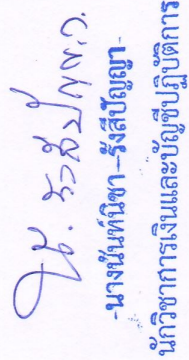 นช. รังสีปัญญา.
-นางนันท์นิชา--รังสีปัญญา-
นักวิชาการเงินและบัญชีปฏิบัติการ